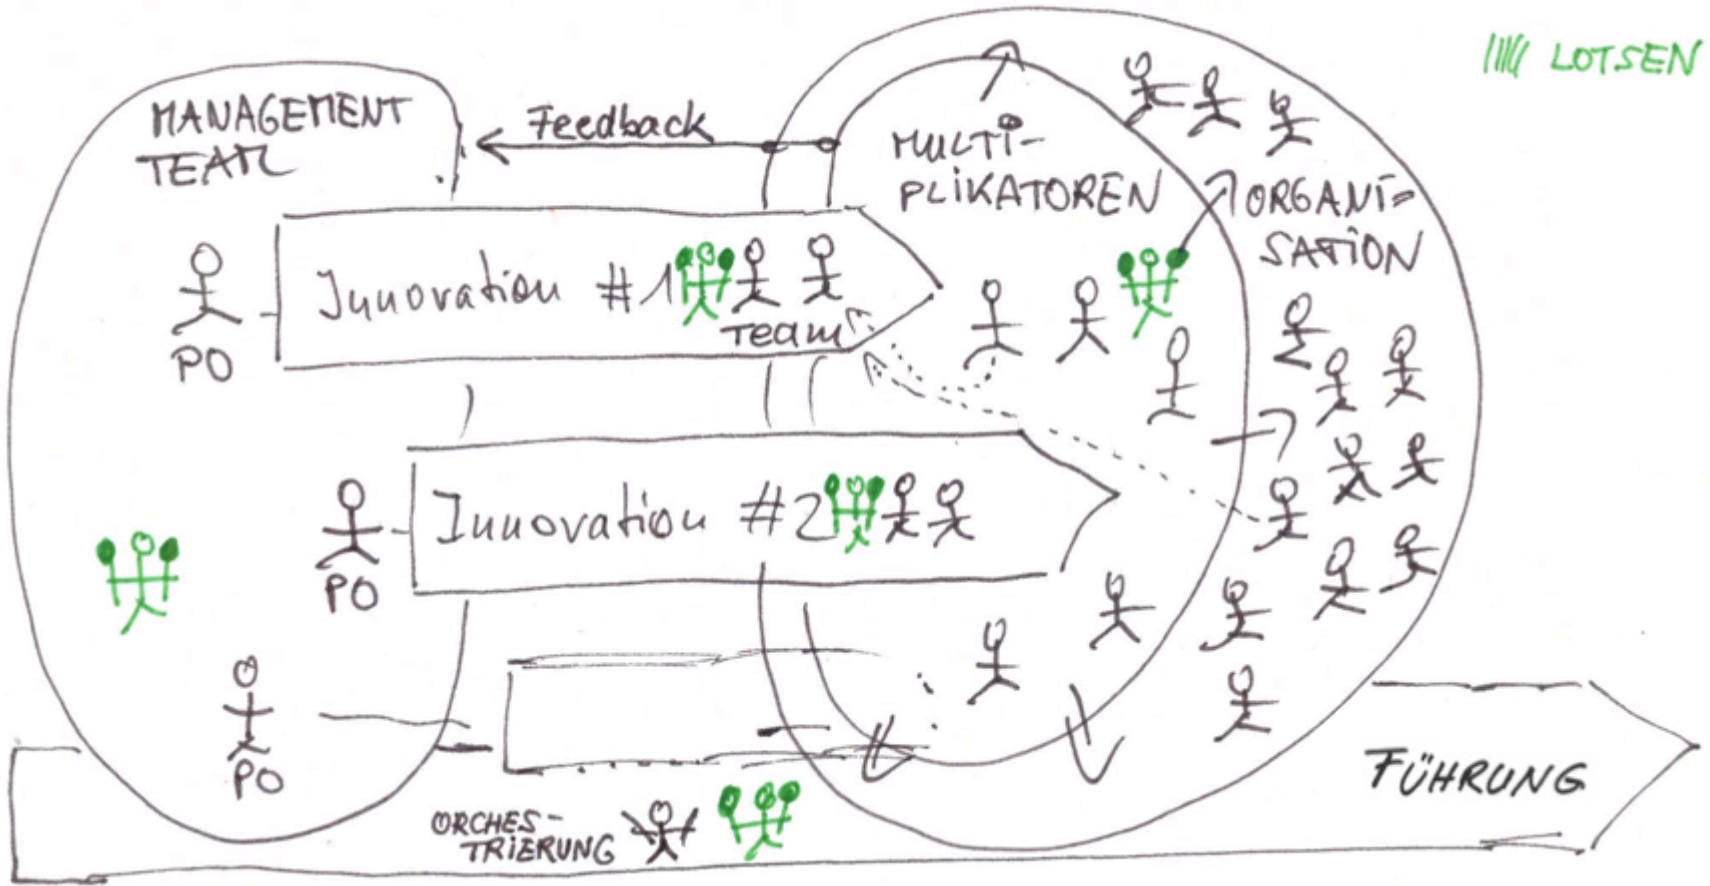 LOTSEN
MANAGEMENT
TEAM
Feedback
MULTI-
PLIKATOREN
ORGANI=
SATION
Innovation #1
Team
PO
Innovation #2
PO
PO
ORCHES-
TRIERUNG
FÜHRUNG